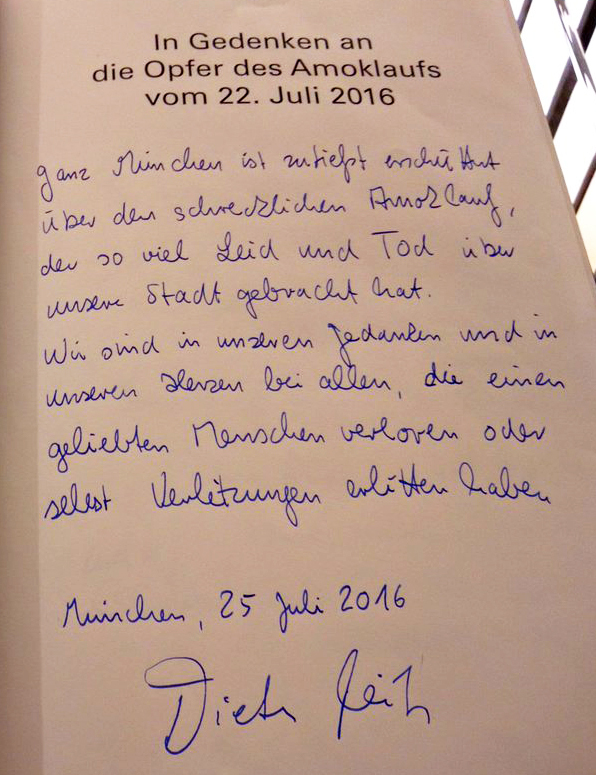 In Gedenken an
die Opfer des Amoklaufs
vom 22. Juli 2016
ganz München ist zutiefst erschüttert
über den schrecklichen Amoklauf,
der so viel Leid und Tod über
unsere Stadt gebracht hat.
Wir sind in unseren Gedanken und in
unseren Herzen bei allen, die einen
geliebten Menschen verloren oder
selbst Verletzungen erlitten haben
München, 25 Juli 2016
Dieter Reiter